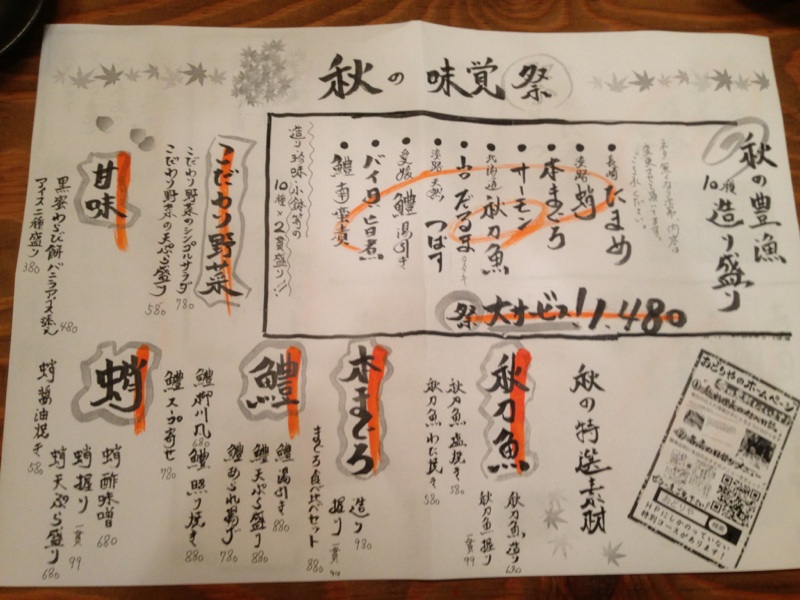 秋の味覚祭
秋の豊漁
10種造り盛り
長崎 たまめ
淡路 蛸
本まぐろ
サーモン
北海道 秋刀魚
淡路 天然 つばす
愛媛 鱧湯引き
バイ貝旨煮
鱧南蛮漬
造り・珍味・小鉢等の
10種×2貫盛り!!
祭 大サービス! 1,480
こだわり野菜
こだわり野菜のシンプルサラダ 780
こだわり野菜の天ぷら盛り 580
甘味
黒蜜わらび餅 バニラアイス添え 480
アイス二種盛り 380
秋の特選素材
秋刀魚
秋刀魚 造り 630
秋刀魚 握り 一貫 99
秋刀魚 塩焼き 580
秋刀魚 わた焼き 580
本まぐろ
造り 980
握り 一貫 99
まぐろ食べ比べセット 880
鱧
鱧 湯引き 880
鱧 天ぷら盛り 880
鱧 あられ揚げ 780
鱧 柳川風 680
鱧 照り焼き 880
鱧 スープ寄せ 780
蛸
蛸 酢味噌 680
蛸 握り 一貫 99
蛸 天ぷら盛り 680
蛸 醤油焼き 580
おどりやのホームページ
おどりや 検索
HPにしかのっていない
特別コースがあります!